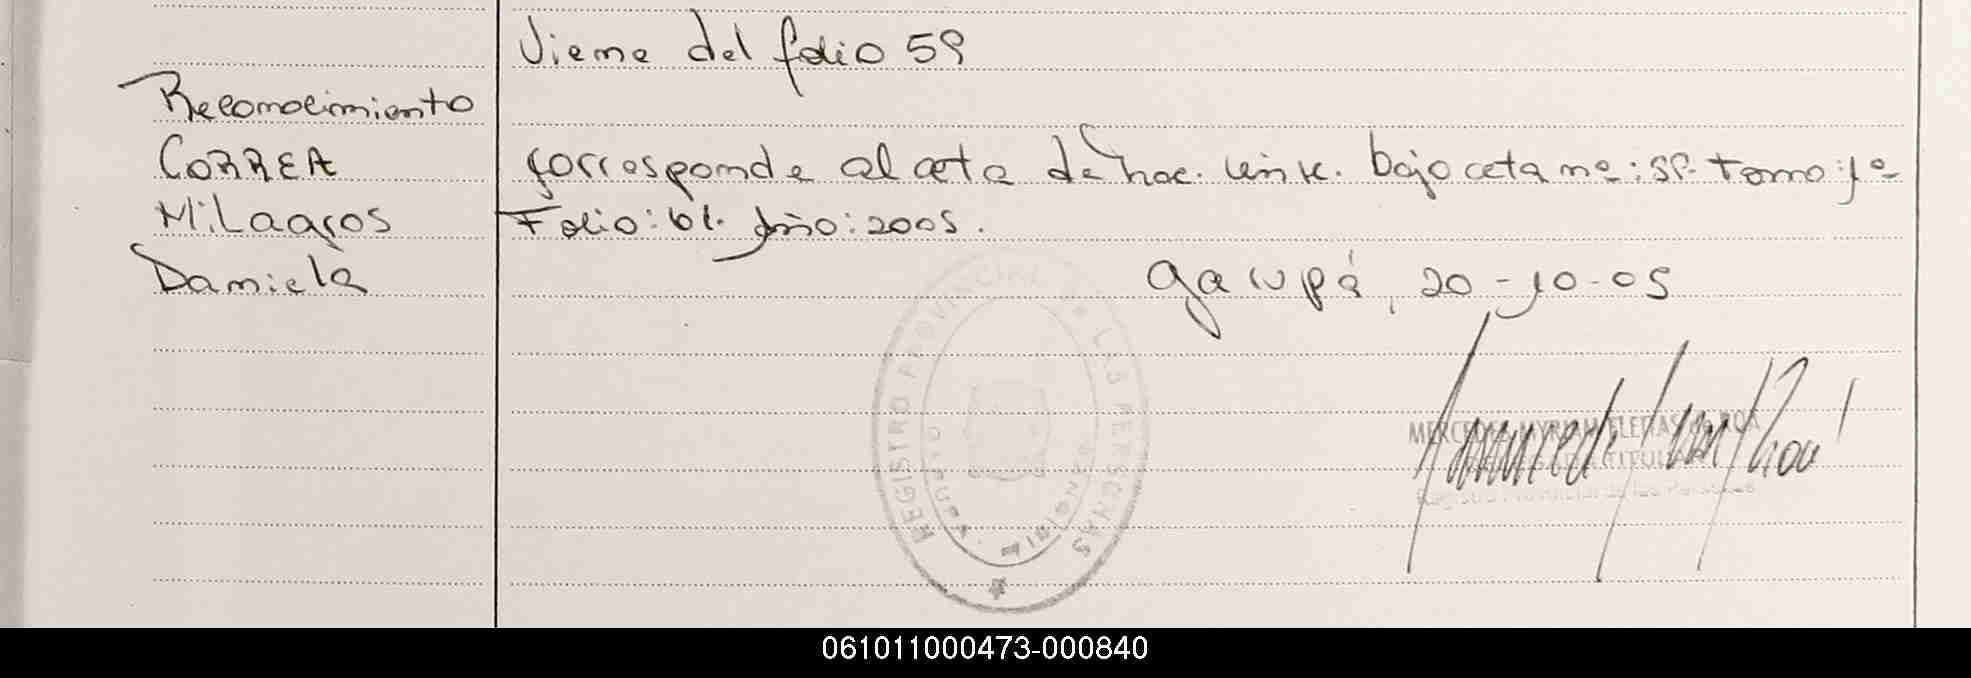 Viene del folio 59
Reconocimiento
CORREA
Milagros
Daniela
corresponde al acta de nac. bajo acta nº: 59. Tomo: 1º
Folio: 61. Año: 2005.
Garupá, 20-10-05
REGISTRO PROVINCIAL DE LAS PERSONAS
MERCEDES MYRIAM
TITULAR
Registro Provincial de las Personas
061011000473-000840